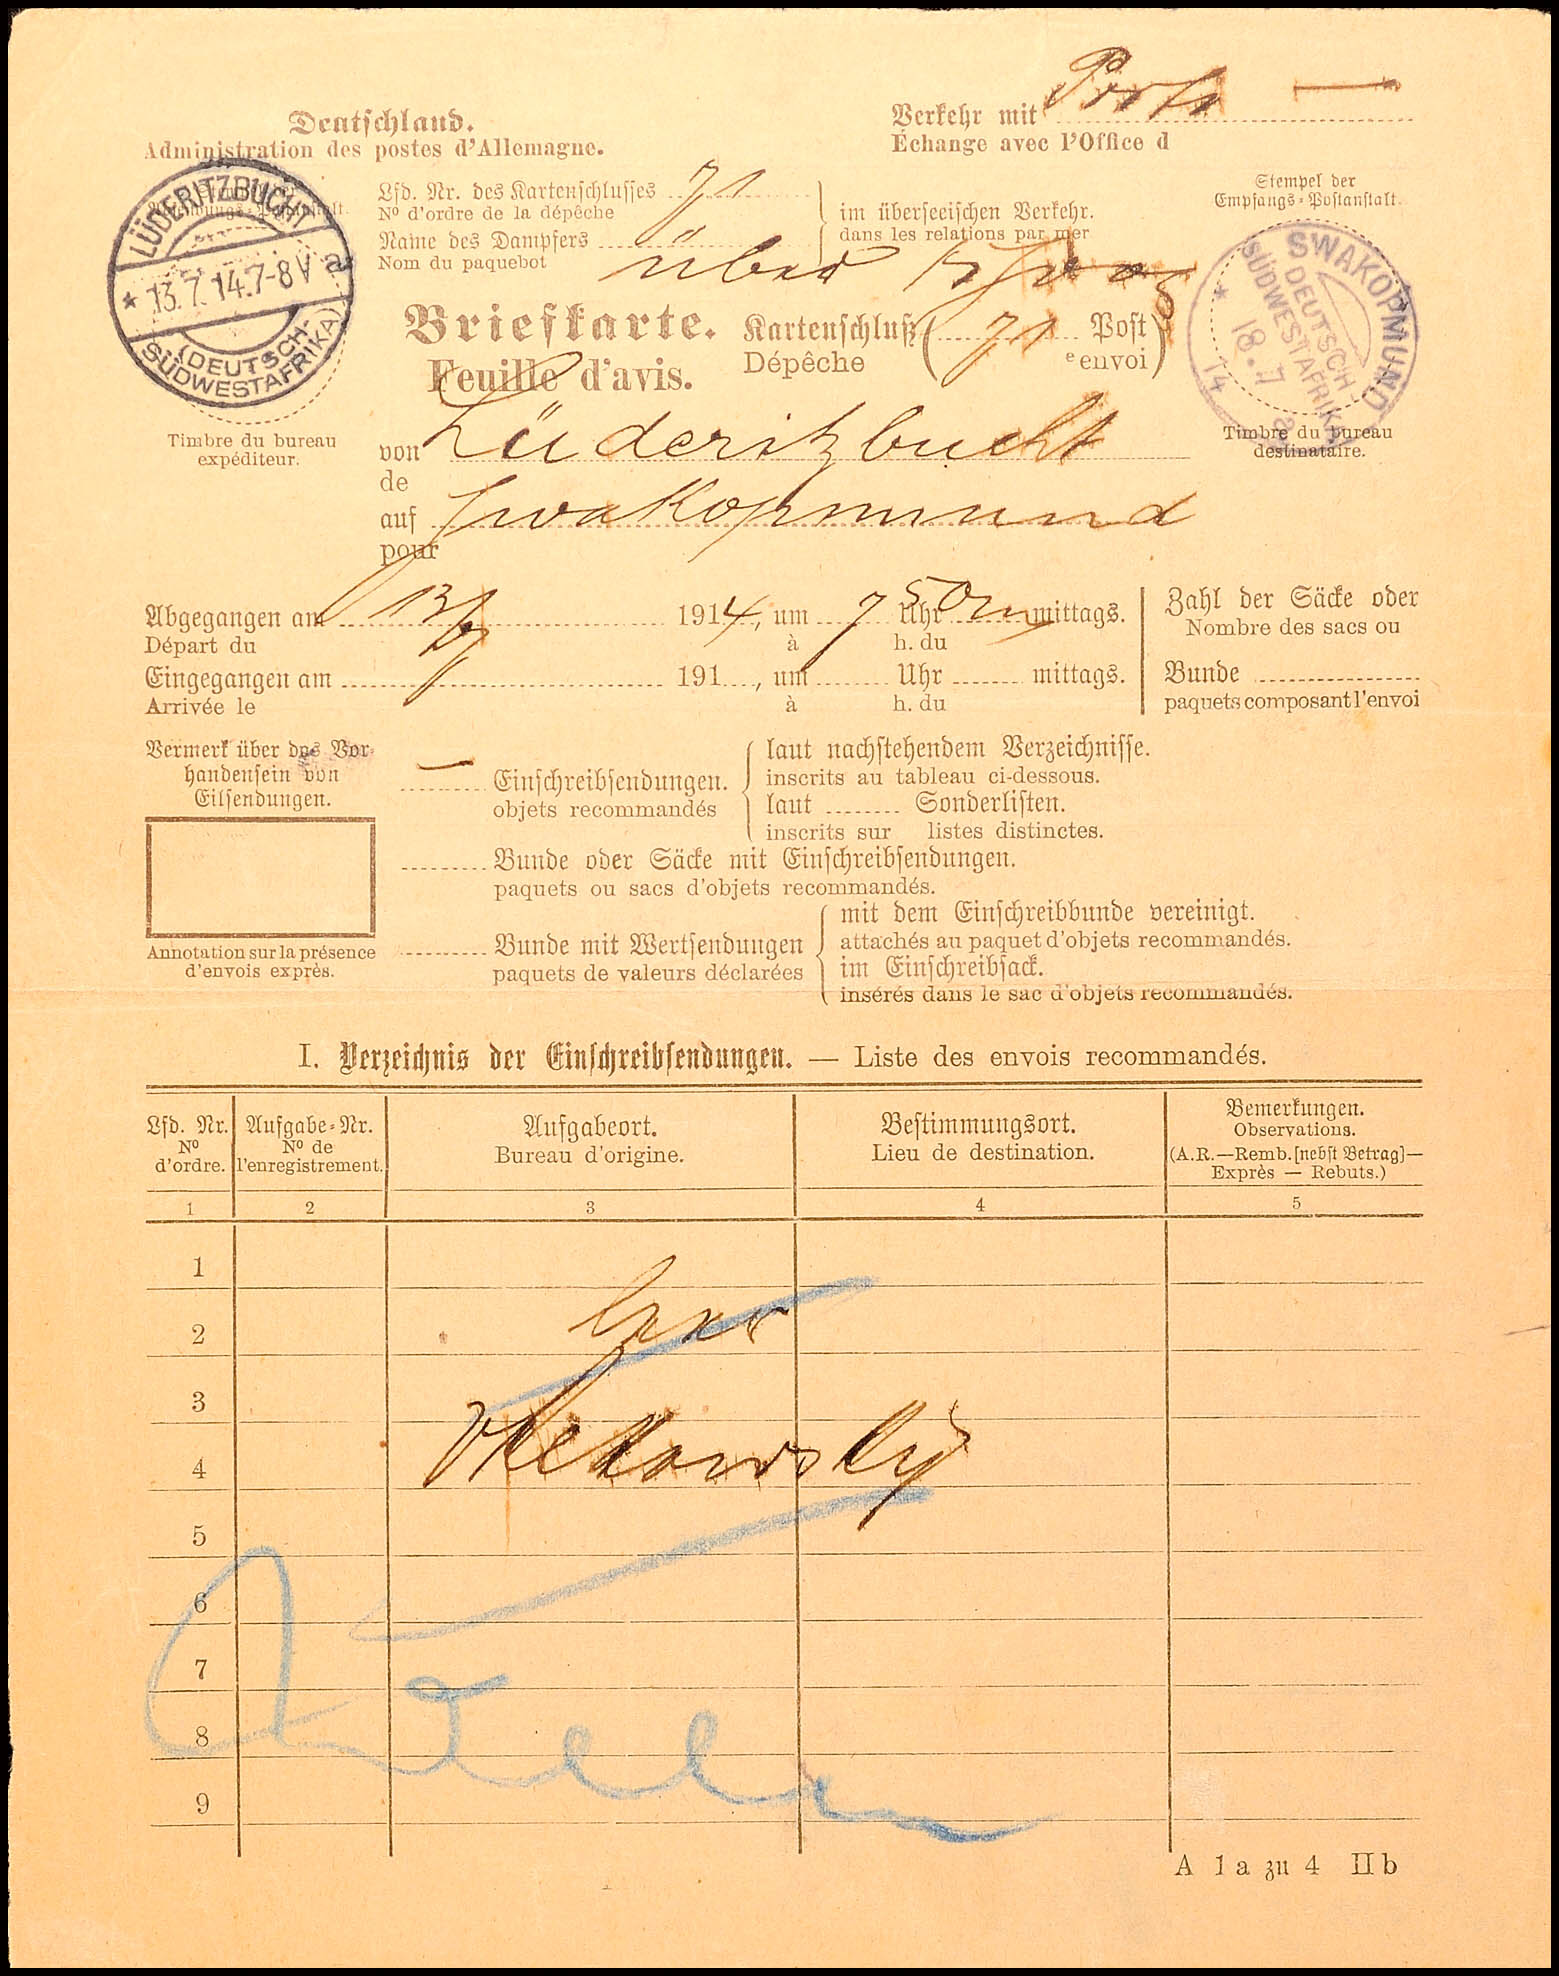 Deutschland.
Administration des postes d'Allemagne.
Verkehr mit
Échange avec l'Office d
LÜDERITZBUCHT
* 13.7.14.7-8V a
(DEUTSCH-
SÜDWESTAFRIKA)
Timbre du bureau
expéditeur.
Lfd. Nr. des Kartenschlusses 71
Nº d'ordre de la dépêche
Name des Dampfers
Nom du paquebot
über
im überseeischen Verkehr.
dans les relations par mer
Stempel der
Empfangs-Postanstalt.
SWAKOPMUND
DEUTSCH-
SÜDWESTAFRIKA
* 18.7 14
Timbre du bureau
destinataire.
Briefkarte.
Feuille d'avis.
Kartenschluß ( 71 Post )
Dépêche e envoi
von Lüderitzbucht
de
auf Swakopmund
pour
Abgegangen am 13/7 1914, um 7 50 Uhr mittags.
Départ du à h. du
Eingegangen am 191 , um Uhr mittags.
Arrivée le à h. du
Zahl der Säcke oder
Nombre des sacs ou
Bunde
paquets composant l'envoi
Vermerk über das Vor-
handensein von
Eilsendungen.
Annotation sur la présence
d'envois exprès.
— Einschreibsendungen.
objets recommandés
laut nachstehendem Verzeichnisse.
inscrits au tableau ci-dessous.
laut Sonderlisten.
inscrits sur listes distinctes.
Bunde oder Säcke mit Einschreibsendungen.
paquets ou sacs d'objets recommandés.
Bunde mit Wertsendungen
paquets de valeurs déclarées
mit dem Einschreibbunde vereinigt.
attachés au paquet d'objets recommandés.
im Einschreibsack.
insérés dans le sac d'objets recommandés.
I. Verzeichnis der Einschreibsendungen. — Liste des envois recommandés.
Lfd. Nr.
Nº
d'ordre.
Aufgabe-Nr.
Nº de
l'enregistrement.
Aufgabeort.
Bureau d'origine.
Bestimmungsort.
Lieu de destination.
Bemerkungen.
Observations.
(A.R.—Remb. [nebst Betrag]—
Exprès — Rebuts.)
1 2 3 4 5
1
2
3
4
5
6
7
8
9
A 1a zu 4 IIb